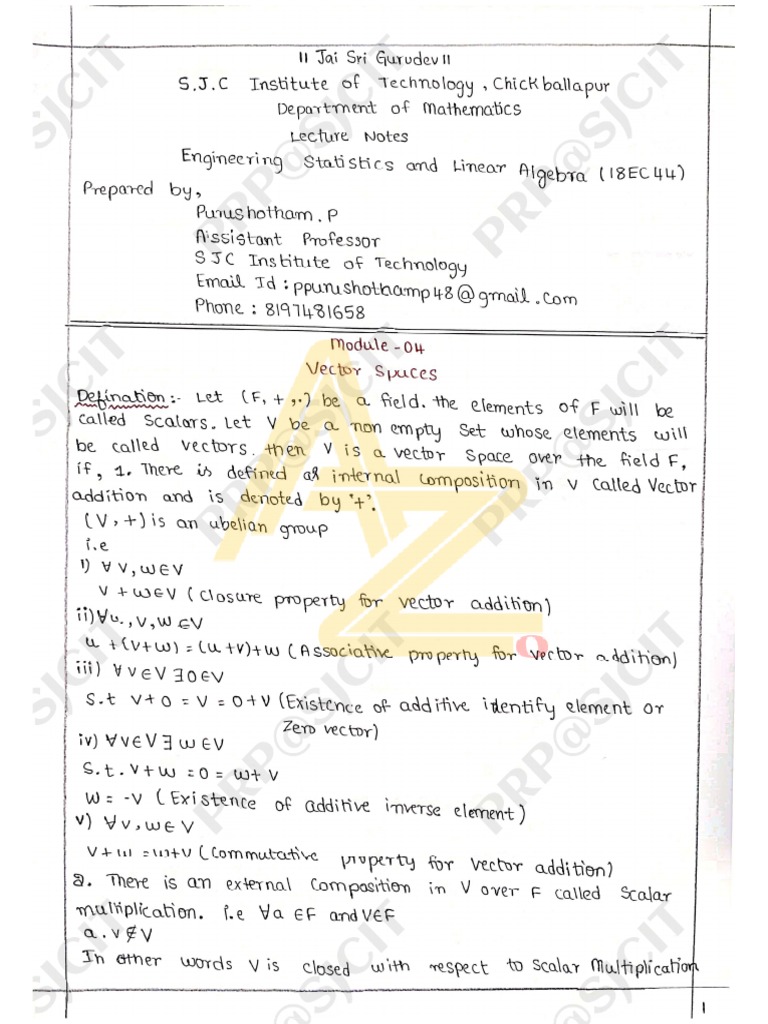 ॥ Jai Sri Gurudev ॥
S.J.C Institute of Technology, Chickballapur
Department of Mathematics
Lecture Notes
Engineering Statistics and Linear Algebra (18EC44)
Prepared by,
Purushotham. P
Assistant Professor
SJC Institute of Technology
Email Id : ppurushothamp48@gmail.com
Phone : 8197481658
Module - 04
Vector Spaces
Defination :- Let (F, + , .) be a field. the elements of F will be
called scalars. Let V be a non empty set whose elements will
be called vectors. then V is a vector space over the field F,
if, 1. There is defined an internal composition in V called Vector
addition and is denoted by '+'.
(V, +) is an abelian group
i.e
i) ∀ v, w ∈ V
v + w ∈ V (closure property for vector addition)
ii) ∀ u, v, w ∈ V
u + (v+w) = (u+v)+w (Associative property for vector addition)
iii) ∀ v ∈ V ∃ 0 ∈ V
s.t v + 0 = v = 0 + v (Existence of additive identify element or
Zero vector)
iv) ∀ v ∈ V ∃ w ∈ V
s.t. v + w = 0 = w + v
w = -v (Existence of additive inverse element)
v) ∀ v, w ∈ V
v + w = w + v (Commutative property for vector addition)
2. There is an external composition in V over F called scalar
multiplication. i.e ∀ a ∈ F and v ∈ F
a . v ∉ V
In other words V is closed with respect to scalar multiplication
1
PRP@SJCIT
AZ